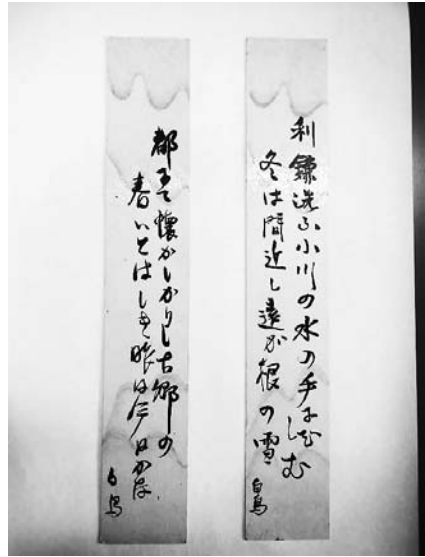 利鎌洗ふ小川の水の手にしむ
冬は間近し遠が根の雪
白鳥
都にて懐かしかりし古郷の
春いとはしき眺は今日かな
白鳥